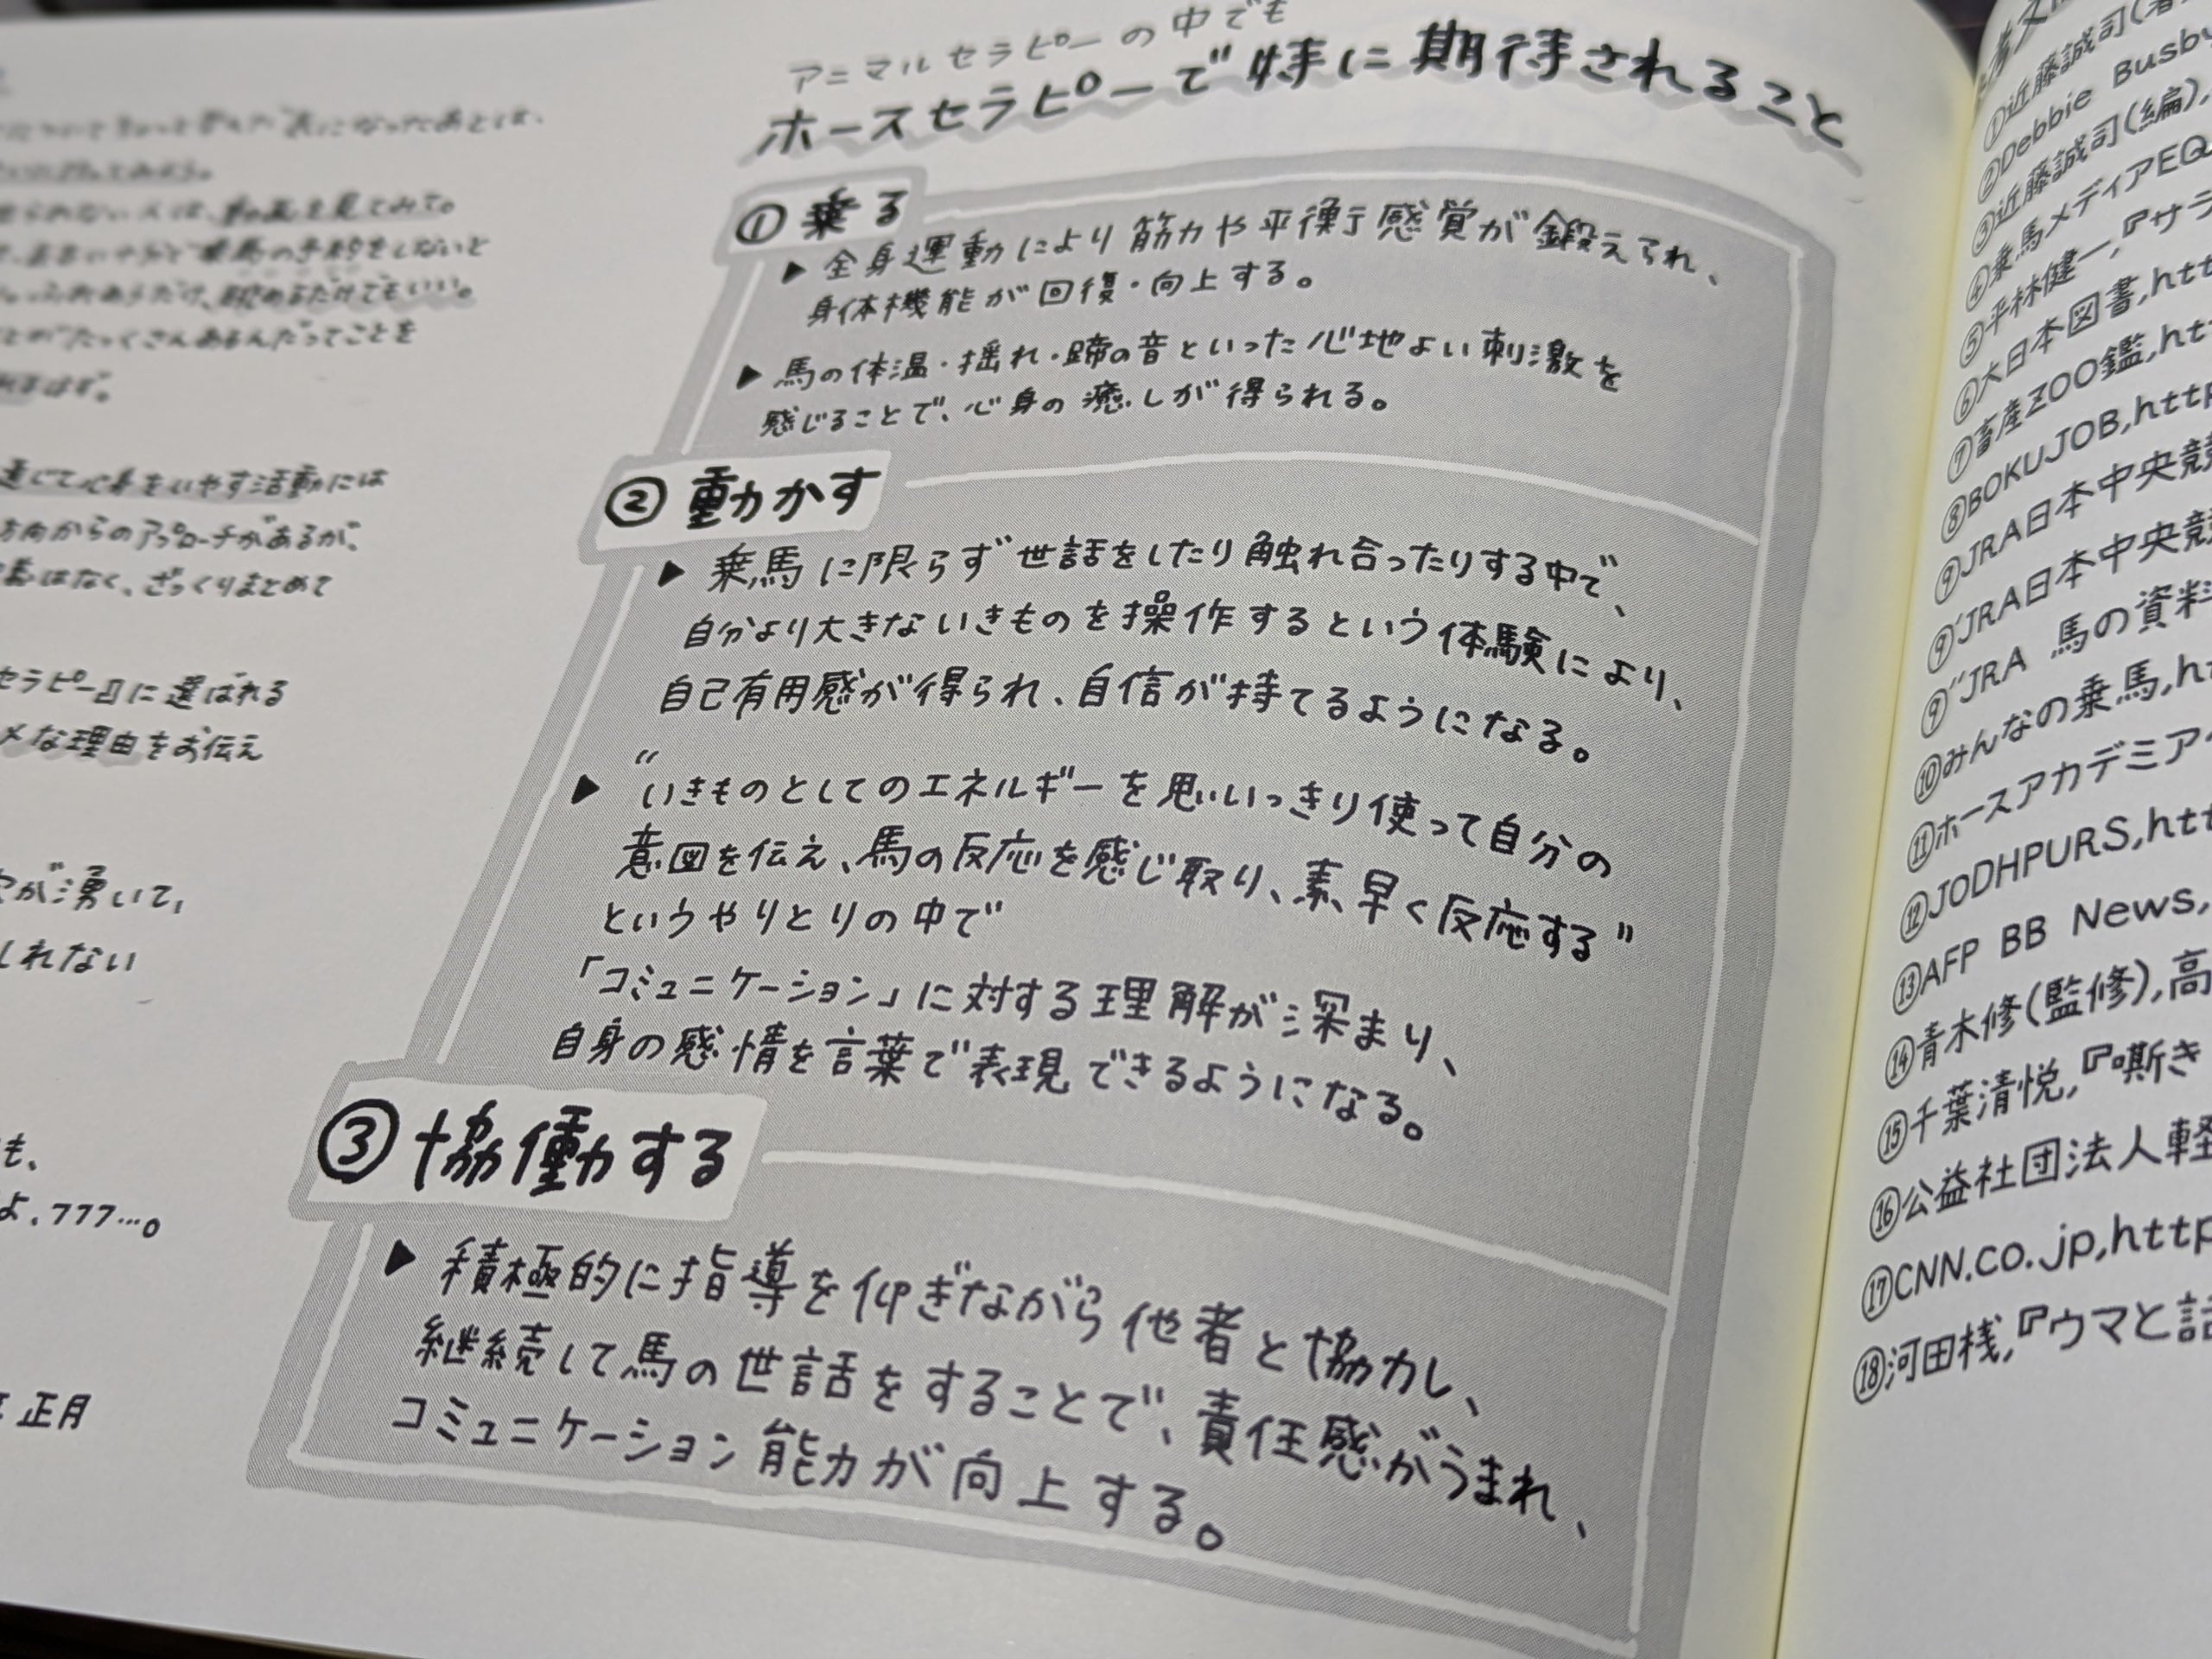 動画を見てみて。
眺めるだけでもいい。
とがたっくさんあるんだってことを
通じて心身をいやす活動には
方向からのアプローチがあるが、
はなく、ざっくりまとめて
セラピー』に選ばれる
メな理由をお伝え
が湧いて、
しれない
も、
よ、フフフ…。
正月
アニマルセラピーの中でも
ホースセラピーで特に期待されること
① 乗る
▶ 全身運動により筋力や平衡感覚が鍛えられ、
身体機能が回復・向上する。
▶ 馬の体温・揺れ・蹄の音といった心地よい刺激を
感じることで、心身の癒しが得られる。
② 動かす
▶ 乗馬に限らず世話をしたり触れ合ったりする中で、
自分より大きないきものを操作するという体験により、
自己有用感が得られ、自信が持てるようになる。
▶ “いきものとしてのエネルギーを思いっきり使って自分の
意図を伝え、馬の反応を感じ取り、素早く反応する”
というやりとりの中で
「コミュニケーション」に対する理解が深まり、
自身の感情を言葉で表現できるようになる。
③ 協働する
▶ 積極的に指導を仰ぎながら他者と協力し、
継続して馬の世話をすることで、責任感がうまれ、
コミュニケーション能力が向上する。
①近藤誠司(著
②Debbie Busby
③近藤誠司(編),
④乗馬メディアEQ
⑤平林健一,『サラ
⑥大日本図書,htt
⑦畜産ZOO鑑,ht
⑧BOKUJOB,http
⑨JRA日本中央競
⑨'JRA日本中央競
⑨"JRA 馬の資料
⑩みんなの乗馬,ht
⑪ホースアカデミア
⑫JODHPURS,htt
⑬AFP BB News,
⑭青木修(監修),高
⑮千葉清悦,『嘶き
⑯公益社団法人軽
⑰CNN.co.jp,http
⑱河田桟,『ウマと話